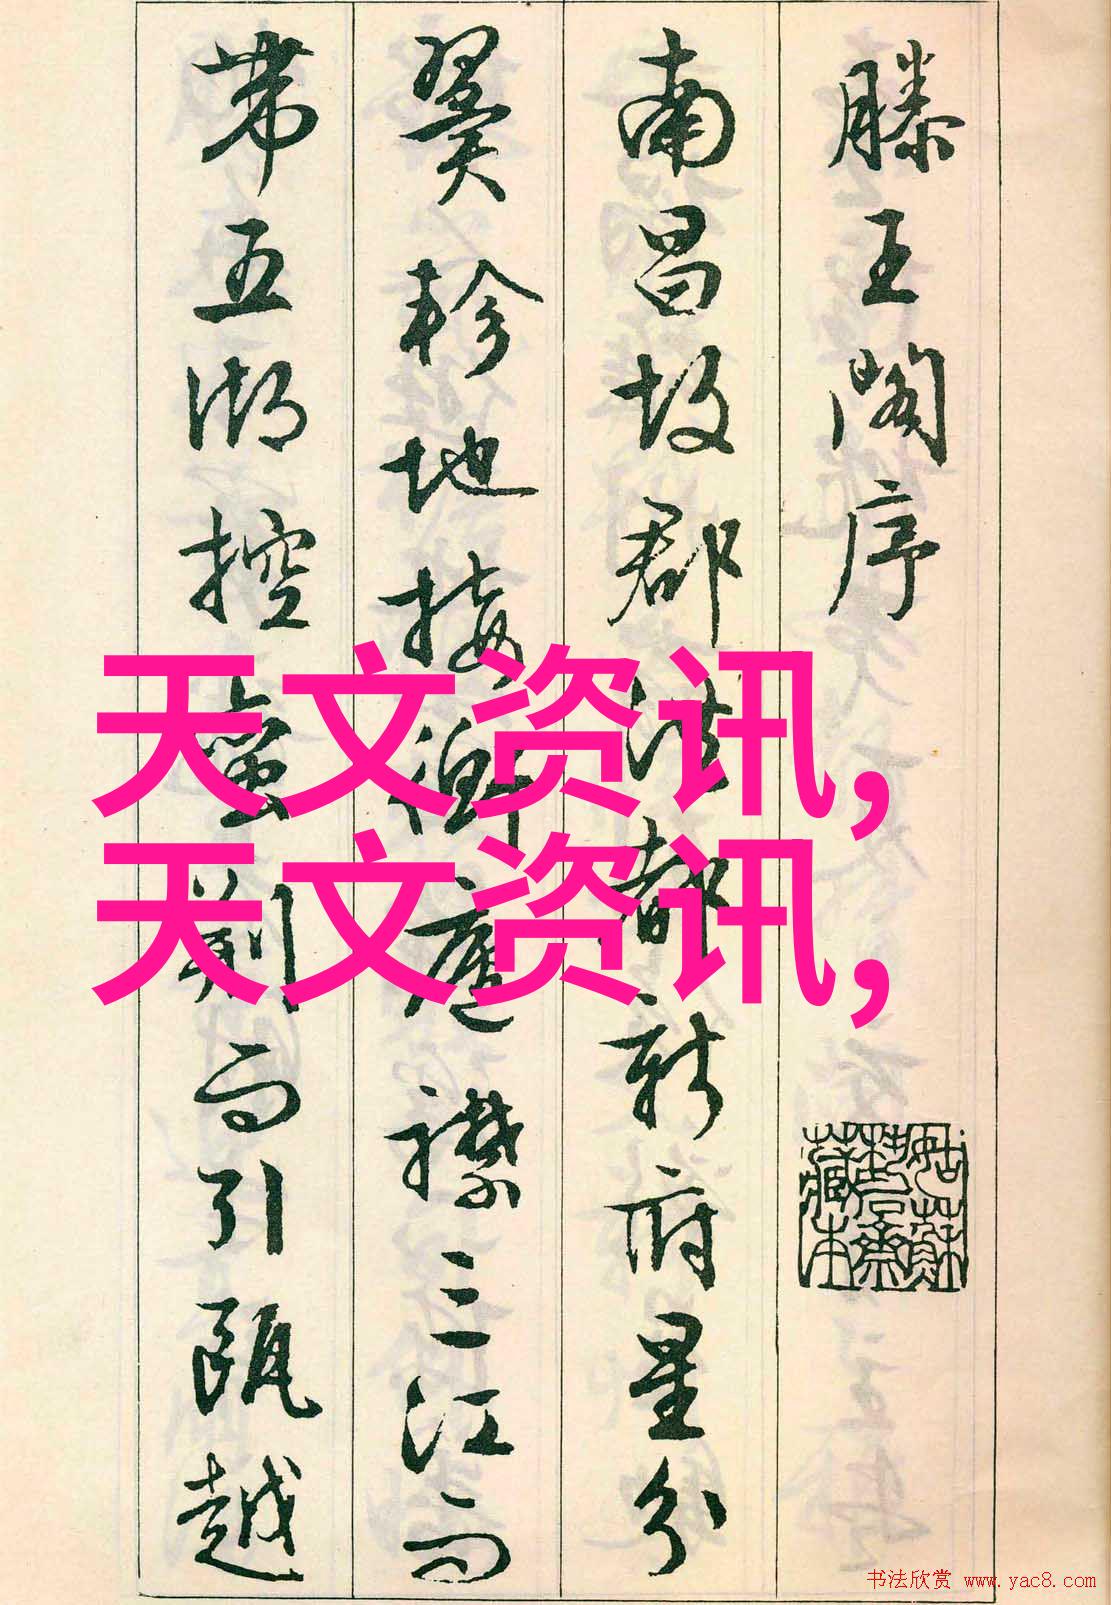 滕王閣序
南昌故郡洪都新府星分
翼軫地接衡廬襟三江而
帶五湖控蠻荊而引甌越
天文资讯,
天文资讯,
姑蘇
藏本
书法欣赏 www.yac8.com